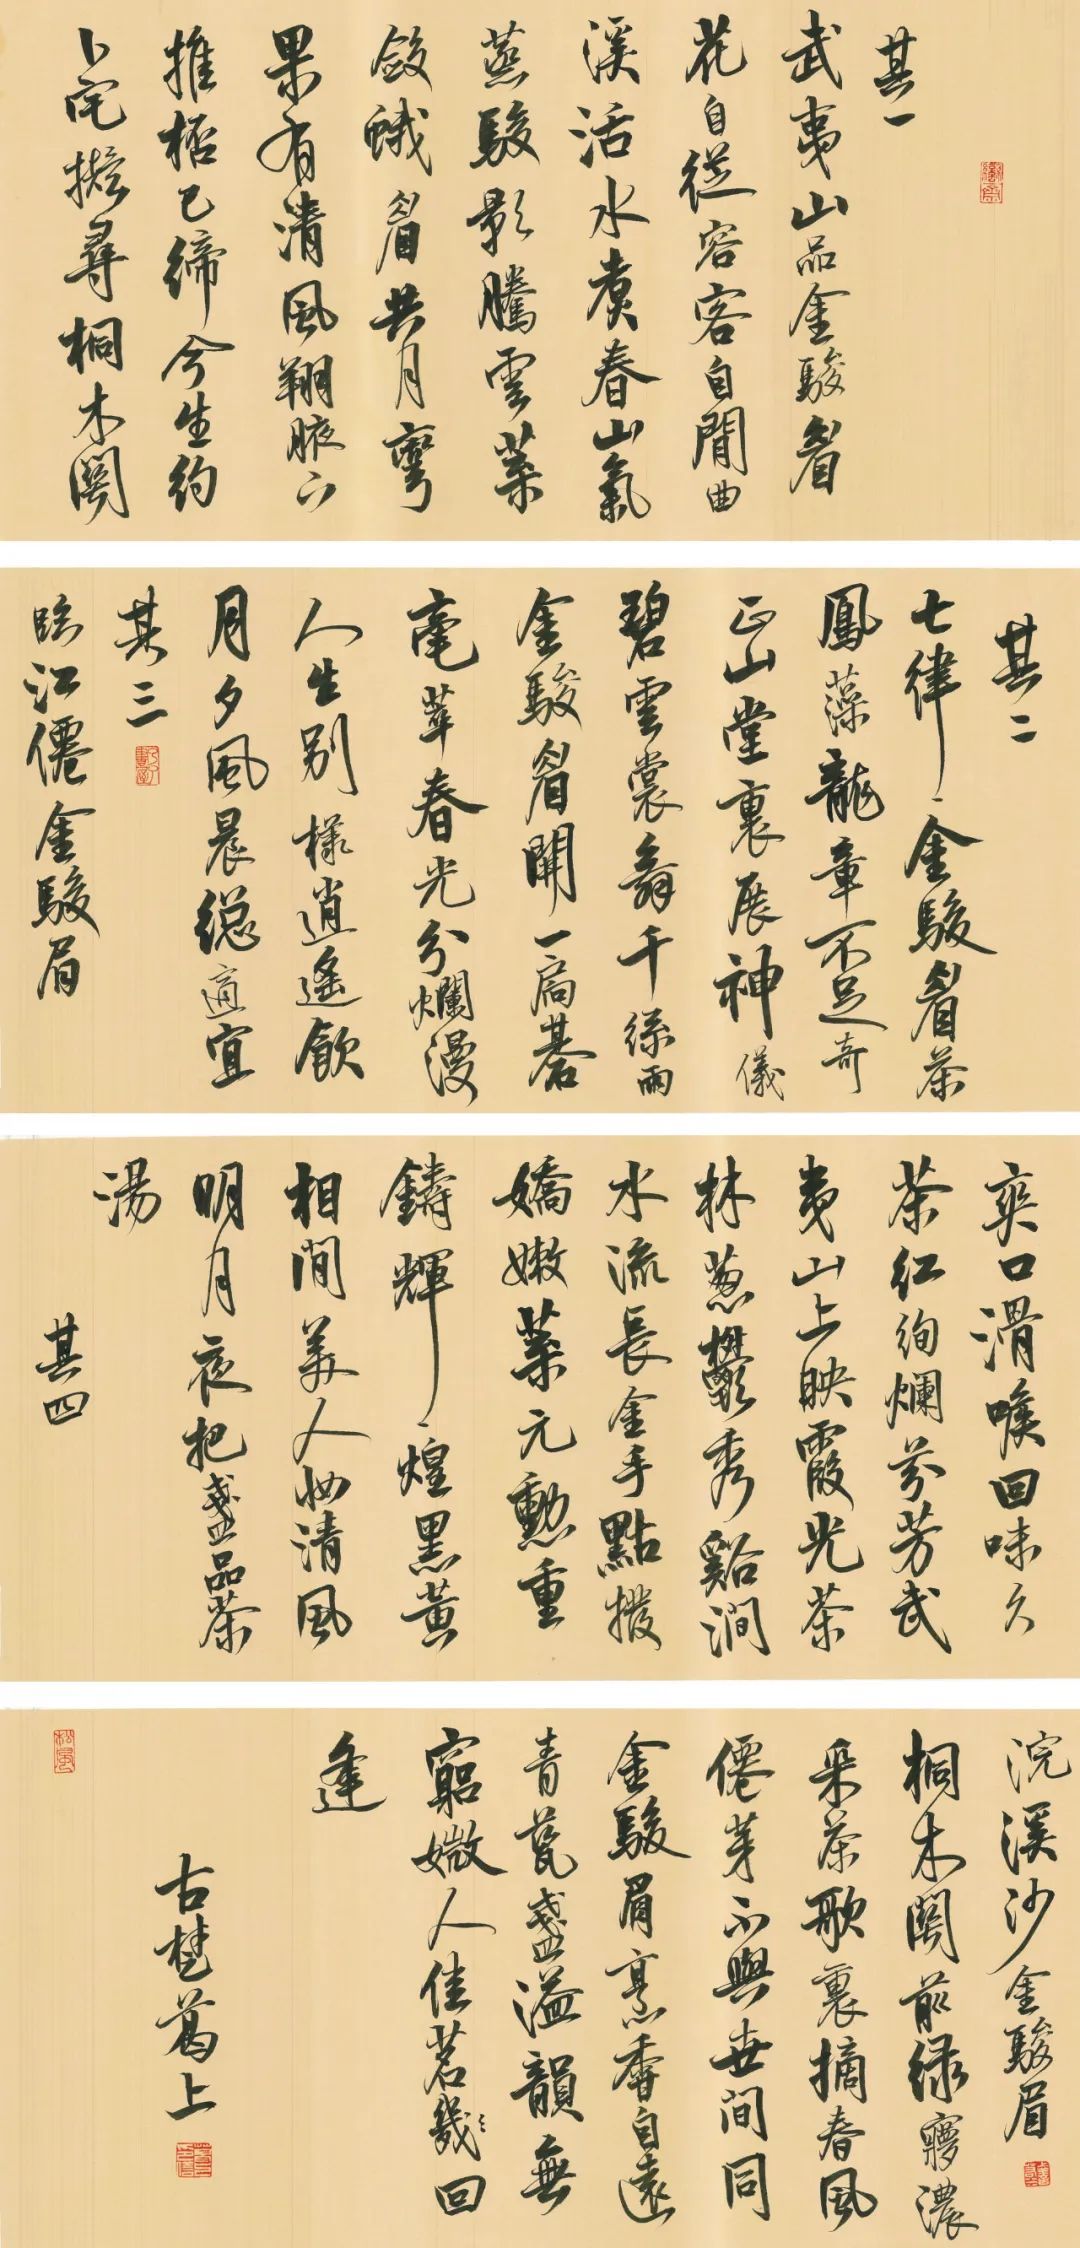 其一
武夷山品金駿眉
花自從容客自閒曲
溪活水煮春山氣
蒸駿影騰雲葉
斂蛾眉共月彎
果有清風翔腋下
推梧已締今生約
卜宅擬尋桐木関
其二
七律金駿眉茶
鳳藻龍章不足奇
正山堂裏展神儀
碧雲裳舞千絲雨
金駿眉開一局碁
亳華春光分爛漫
人生別樣逍遙飲
月夕風晨總適宜
其三
臨江僊金駿眉
爽口滑喉回味久
茶紅絢爛芬芳武
夷山上映霞光茶
林蔥鬱秀谿澗
水流長金手點撥
嬌嫩葉元勳重
鑄輝煌黑黃
相間美人妝清風
明月夜把盞品茶
湯
其四
浣溪沙金駿眉
桐木関前綠寥濃
采茶歌裏摘春風
僊芽不與世間同
金駿眉烹香自遠
青甆盞溢韻無
窮媺人佳茗幾回
逢
古楚葛上
松風